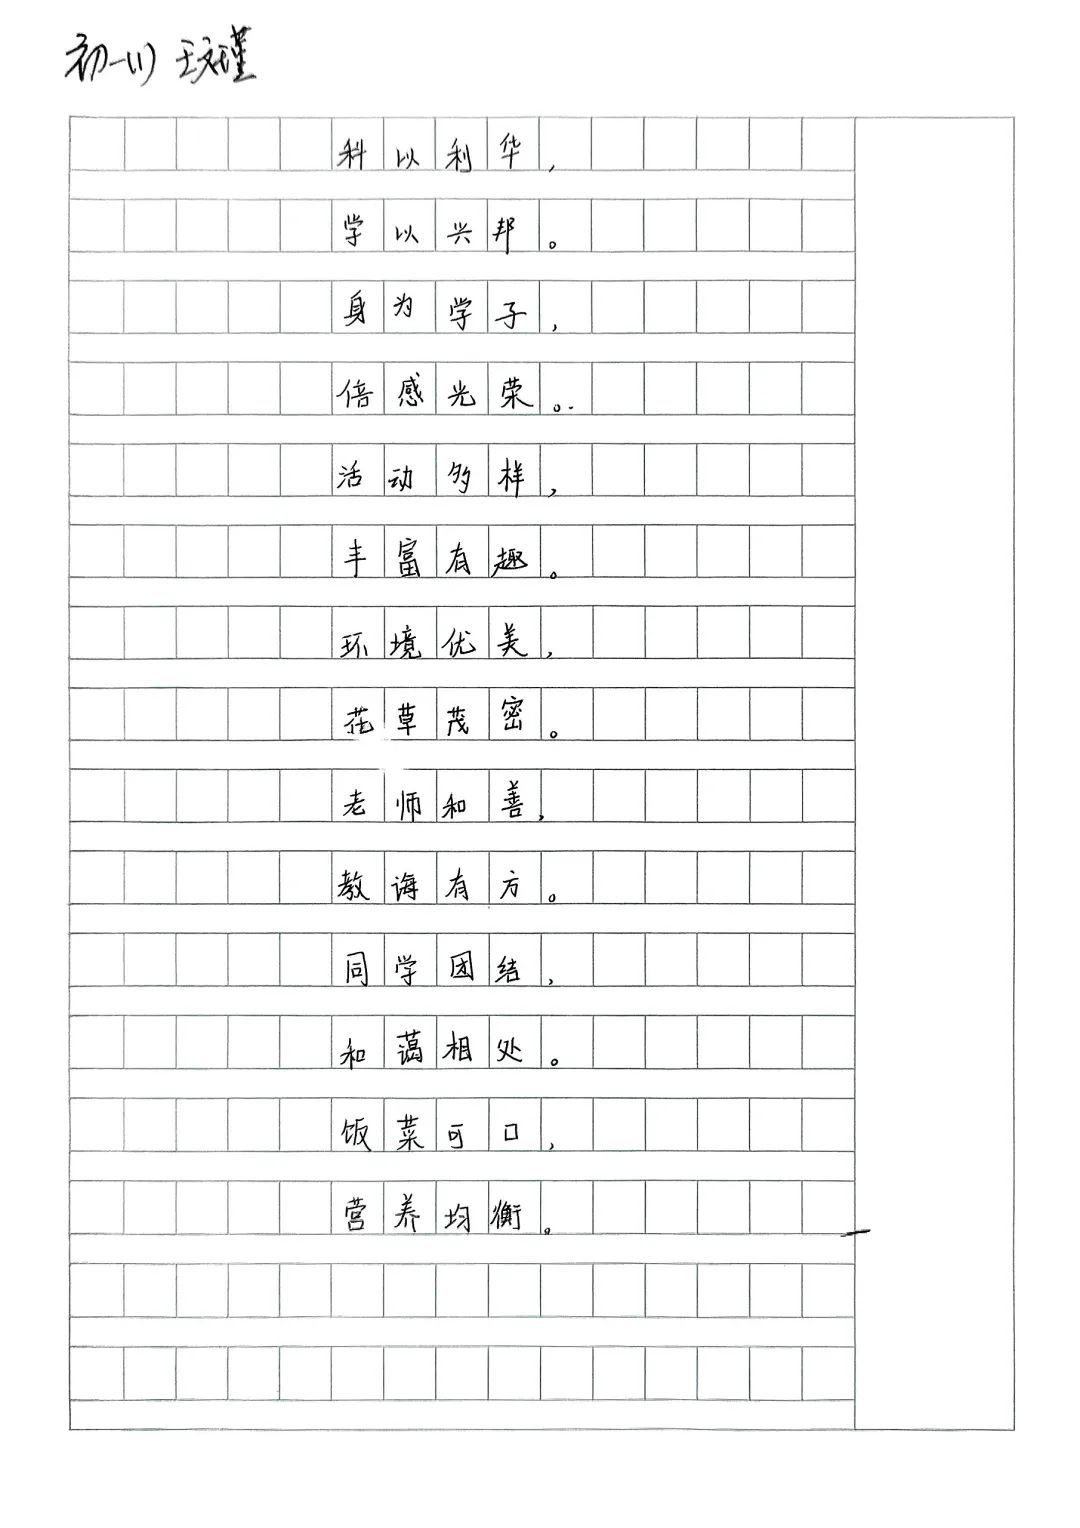 初一(1) 王文瑾
科以利华,
学以兴邦。
身为学子,
倍感光荣。
活动多样,
丰富有趣。
环境优美,
花草茂密。
老师和善,
教诲有方。
同学团结,
和蔼相处。
饭菜可口,
营养均衡。